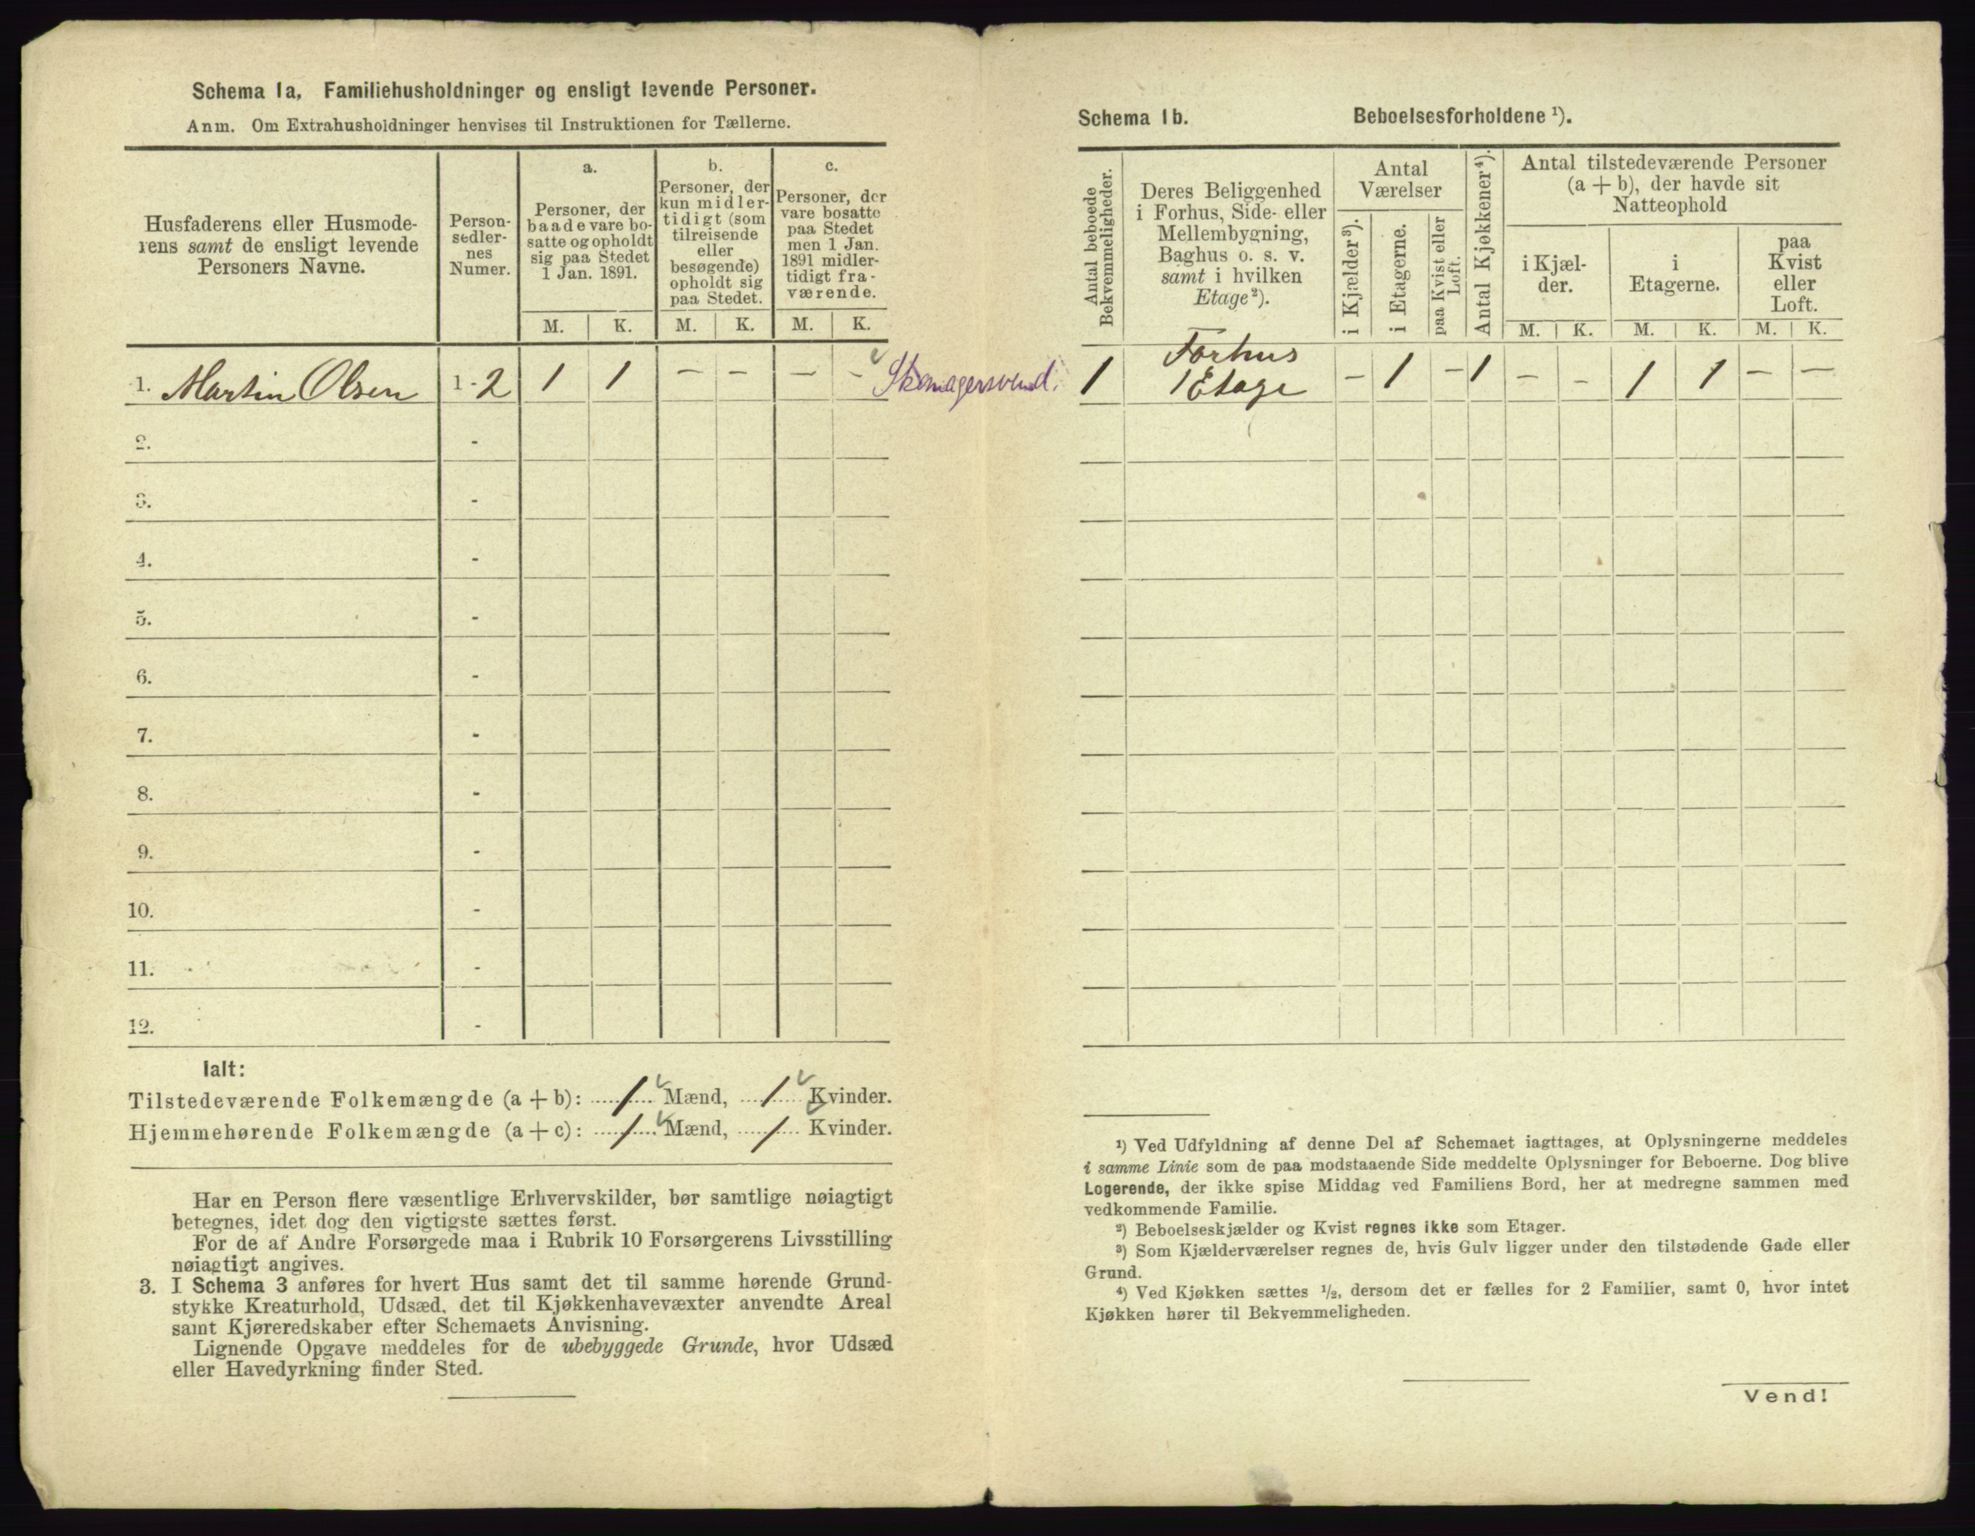 Schema 1a, Familiehusholdninger og ensligt levende Personer.
Anm. Om Extrahusholdninger henvises til Instruktionen for Tællerne.
Husfaderens eller Husmode-
rens samt de ensligt levende
Personers Navne.
Person-
sedler-
nes
Numer.
a.
Personer, der
baade vare bo-
satte og opholdt
sig paa Stedet
1 Jan. 1891.
b.
Personer, der
kun midler-
tidigt (som
tilreisende
eller
besøgende)
opholdt sig
paa Stedet.
c.
Personer, der
vare bosatte
paa Stedet
men 1 Jan.
1891 midler-
tidigt fra-
værende.
M. K. M. K. M. K.
1. Martin Olsen 1 - 2 1 1 — — — — Skomagersvend.
2. -
3. -
4. -
5. -
6. -
7. -
8. -
9. -
10. -
11. -
12. -
Ialt:
Tilstedeværende Folkemængde (a + b): 1 Mænd, 1 Kvinder.
Hjemmehørende Folkemængde (a + c): 1 Mænd, 1 Kvinder.
Har en Person flere væsentlige Erhvervskilder, bør samtlige nøiagtigt
betegnes, idet dog den vigtigste sættes først.
For de af Andre Forsørgede maa i Rubrik 10 Forsørgerens Livsstilling
nøiagtigt angives.
3. I Schema 3 anføres for hvert Hus samt det til samme hørende Grund-
stykke Kreaturhold, Udsæd, det til Kjøkkenhavevæxter anvendte Areal
samt Kjøreredskaber efter Schemaets Anvisning.
Lignende Opgave meddeles for de ubebyggede Grunde, hvor Udsæd
eller Havedyrkning finder Sted.
Schema 1b. Beboelsesforholdene ¹).
Antal beboede
Bekvemmeligheder.
Deres Beliggenhed
i Forhus, Side- eller
Mellembygning,
Baghus o. s. v.
samt i hvilken
Etage ²).
Antal
Værelser
i Kjælder ³).
i Etagerne.
paa Kvist eller
Loft.
Antal Kjøkkener ⁴).
Antal tilstedeværende Personer
(a + b), der havde sit
Natteophold
i Kjæl-
der.
i
Etagerne.
paa
Kvist
eller
Loft.
M. K. M. K. M. K.
1 Forhus
1 Etage — 1 — 1 — — 1 1 — —
¹) Ved Udfyldning af denne Del af Schemaet iagttages, at Oplysningerne meddeles
i samme Linie som de paa modstaaende Side meddelte Oplysninger for Beboerne. Dog blive
Logerende, der ikke spise Middag ved Familiens Bord, her at medregne sammen med
vedkommende Familie.
²) Beboelseskjælder og Kvist regnes ikke som Etager.
³) Som Kjælderværelser regnes de, hvis Gulv ligger under den tilstødende Gade eller
Grund.
⁴) Ved Kjøkken sættes ½, dersom det er fælles for 2 Familier, samt 0, hvor intet
Kjøkken hører til Bekvemmeligheden.
Vend!